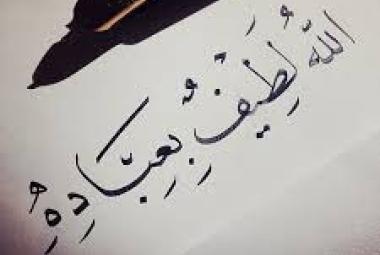 اللّٰهُ لَطِيْفٌ بِعِبَادِهِ